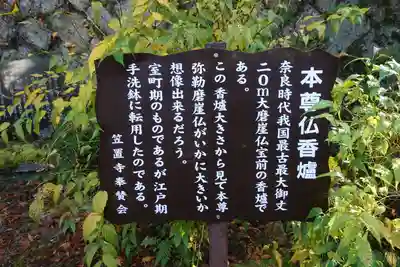 本尊仏香爐
奈良時代我国最古最大御丈
二〇m大磨崖仏宝前の香爐で
ある。
この香爐大きさから見て本尊
弥勒磨崖仏がいかに大きいか
想像出来るだろう。
室町期のものであるが江戸期
手洗鉢に転用したのである。
笠置寺奉賛会